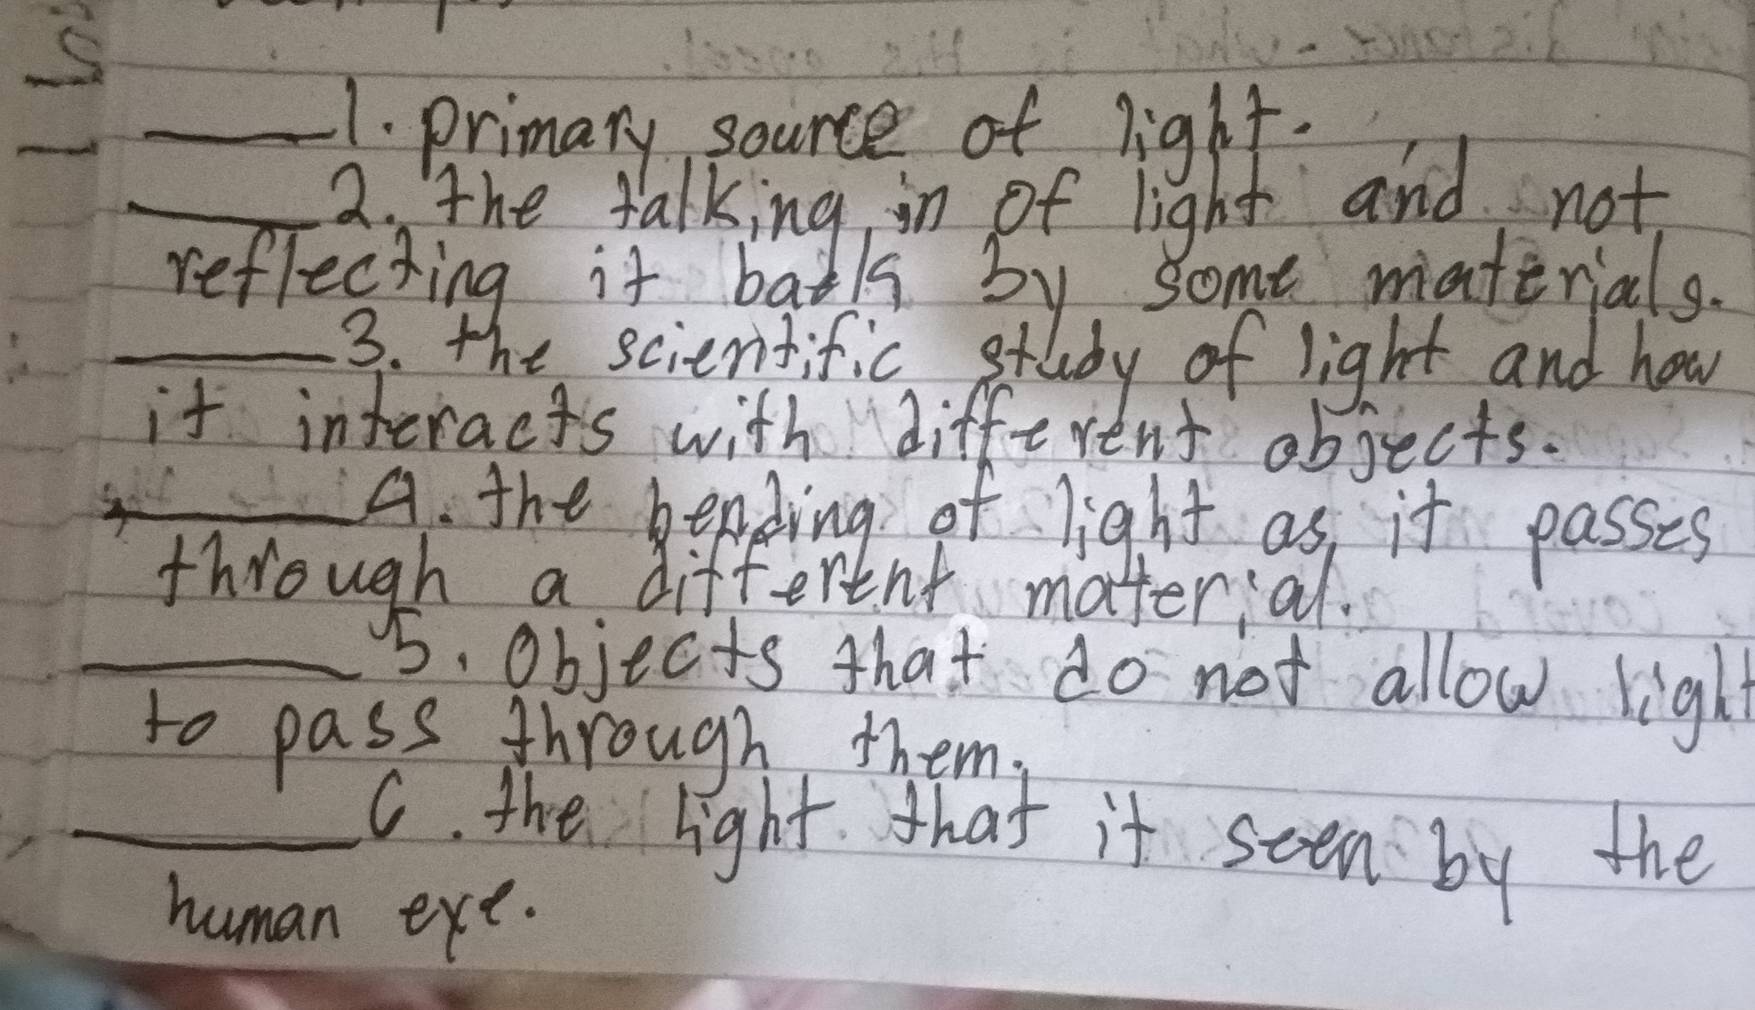 1. primary source of light.
2. the talking in of light and not
reflecting it back by some materials.
3. the scientific study of light and how
it interacts with different objects.
4. the bending of light as it passes
through a different material.
5. Objects that do not allow light
to pass through them.
6. the light that it seen by the
human eye.